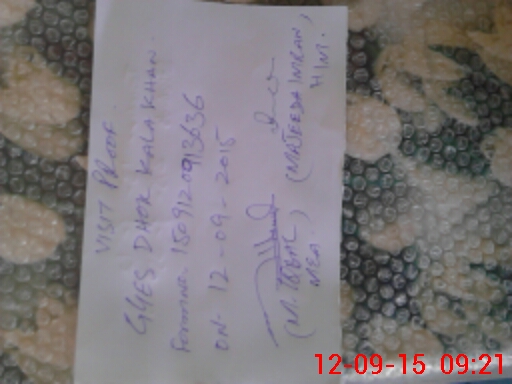 VISIT PROOF
GGES DHOK KALA KHAN.
Form no. 1509120913636
ON- 12-09-2015
(M. IQBAL) (MAJEEDA IMRAN,
MEA. H/M.
12-09-15 09:21